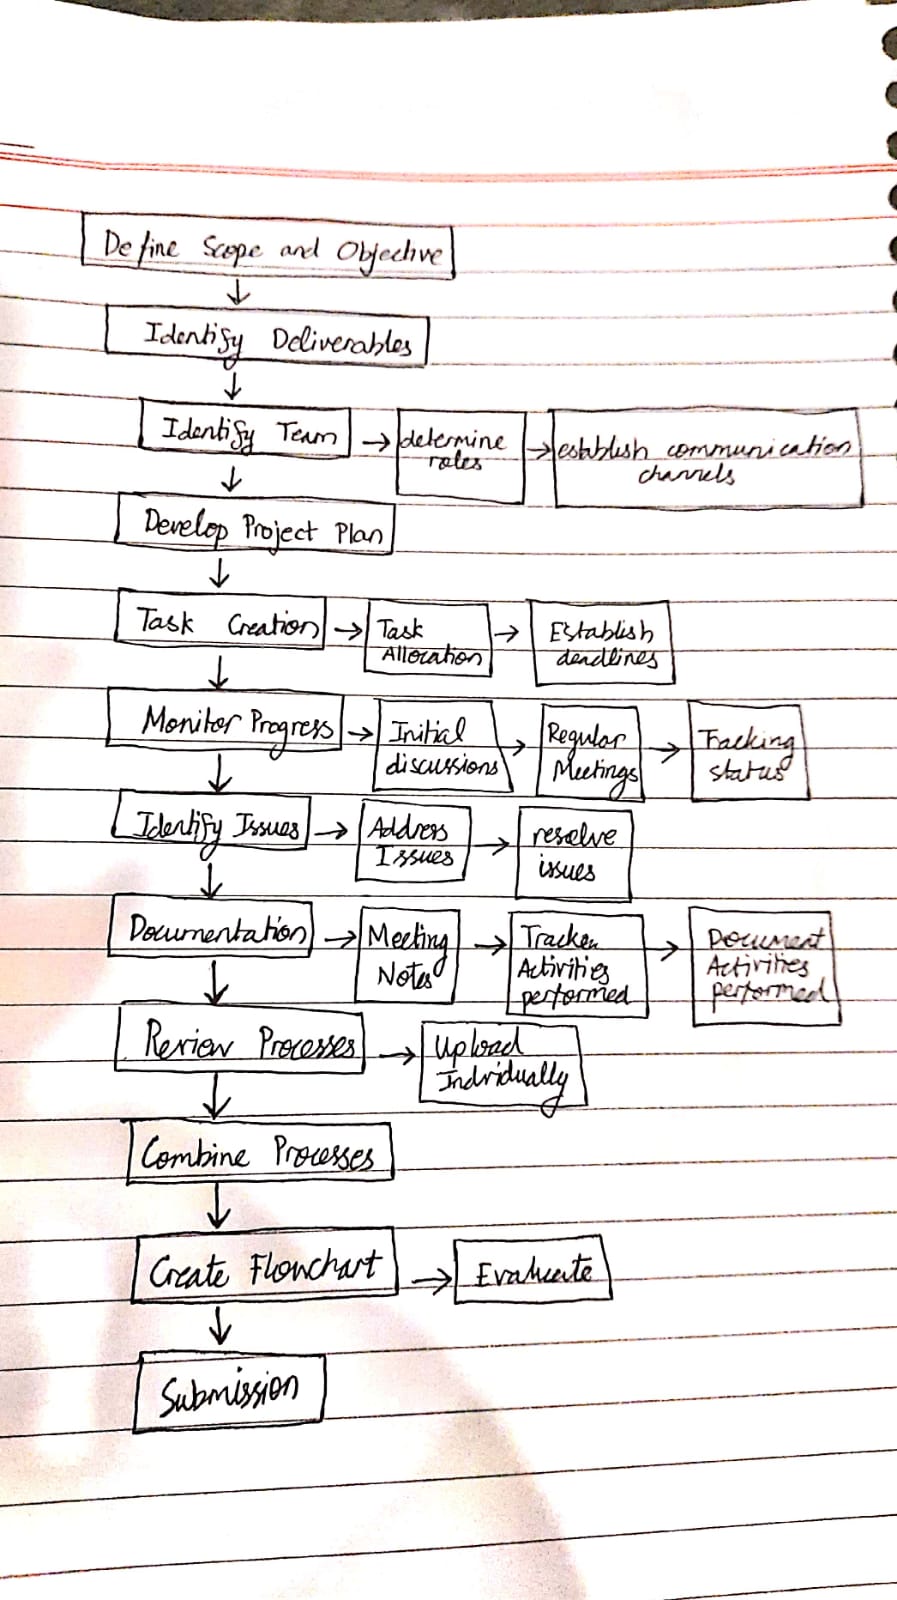 Define Scope and Objective
Identify Deliverables
Identify Team
determine
roles
establish communication
channels
Develop Project Plan
Task Creation
Task
Allocation
Establish
deadlines
Monitor Progress
Initial
discussions
Regular
Meetings
Tracking
status
Identify Issues
Address
Issues
resolve
issues
Documentation
Meeting
Notes
Tracker
Activities
performed
Document
Activities
performed
Review Processes
Upload
Individually
Combine Processes
Create Flowchart
Evaluate
Submission